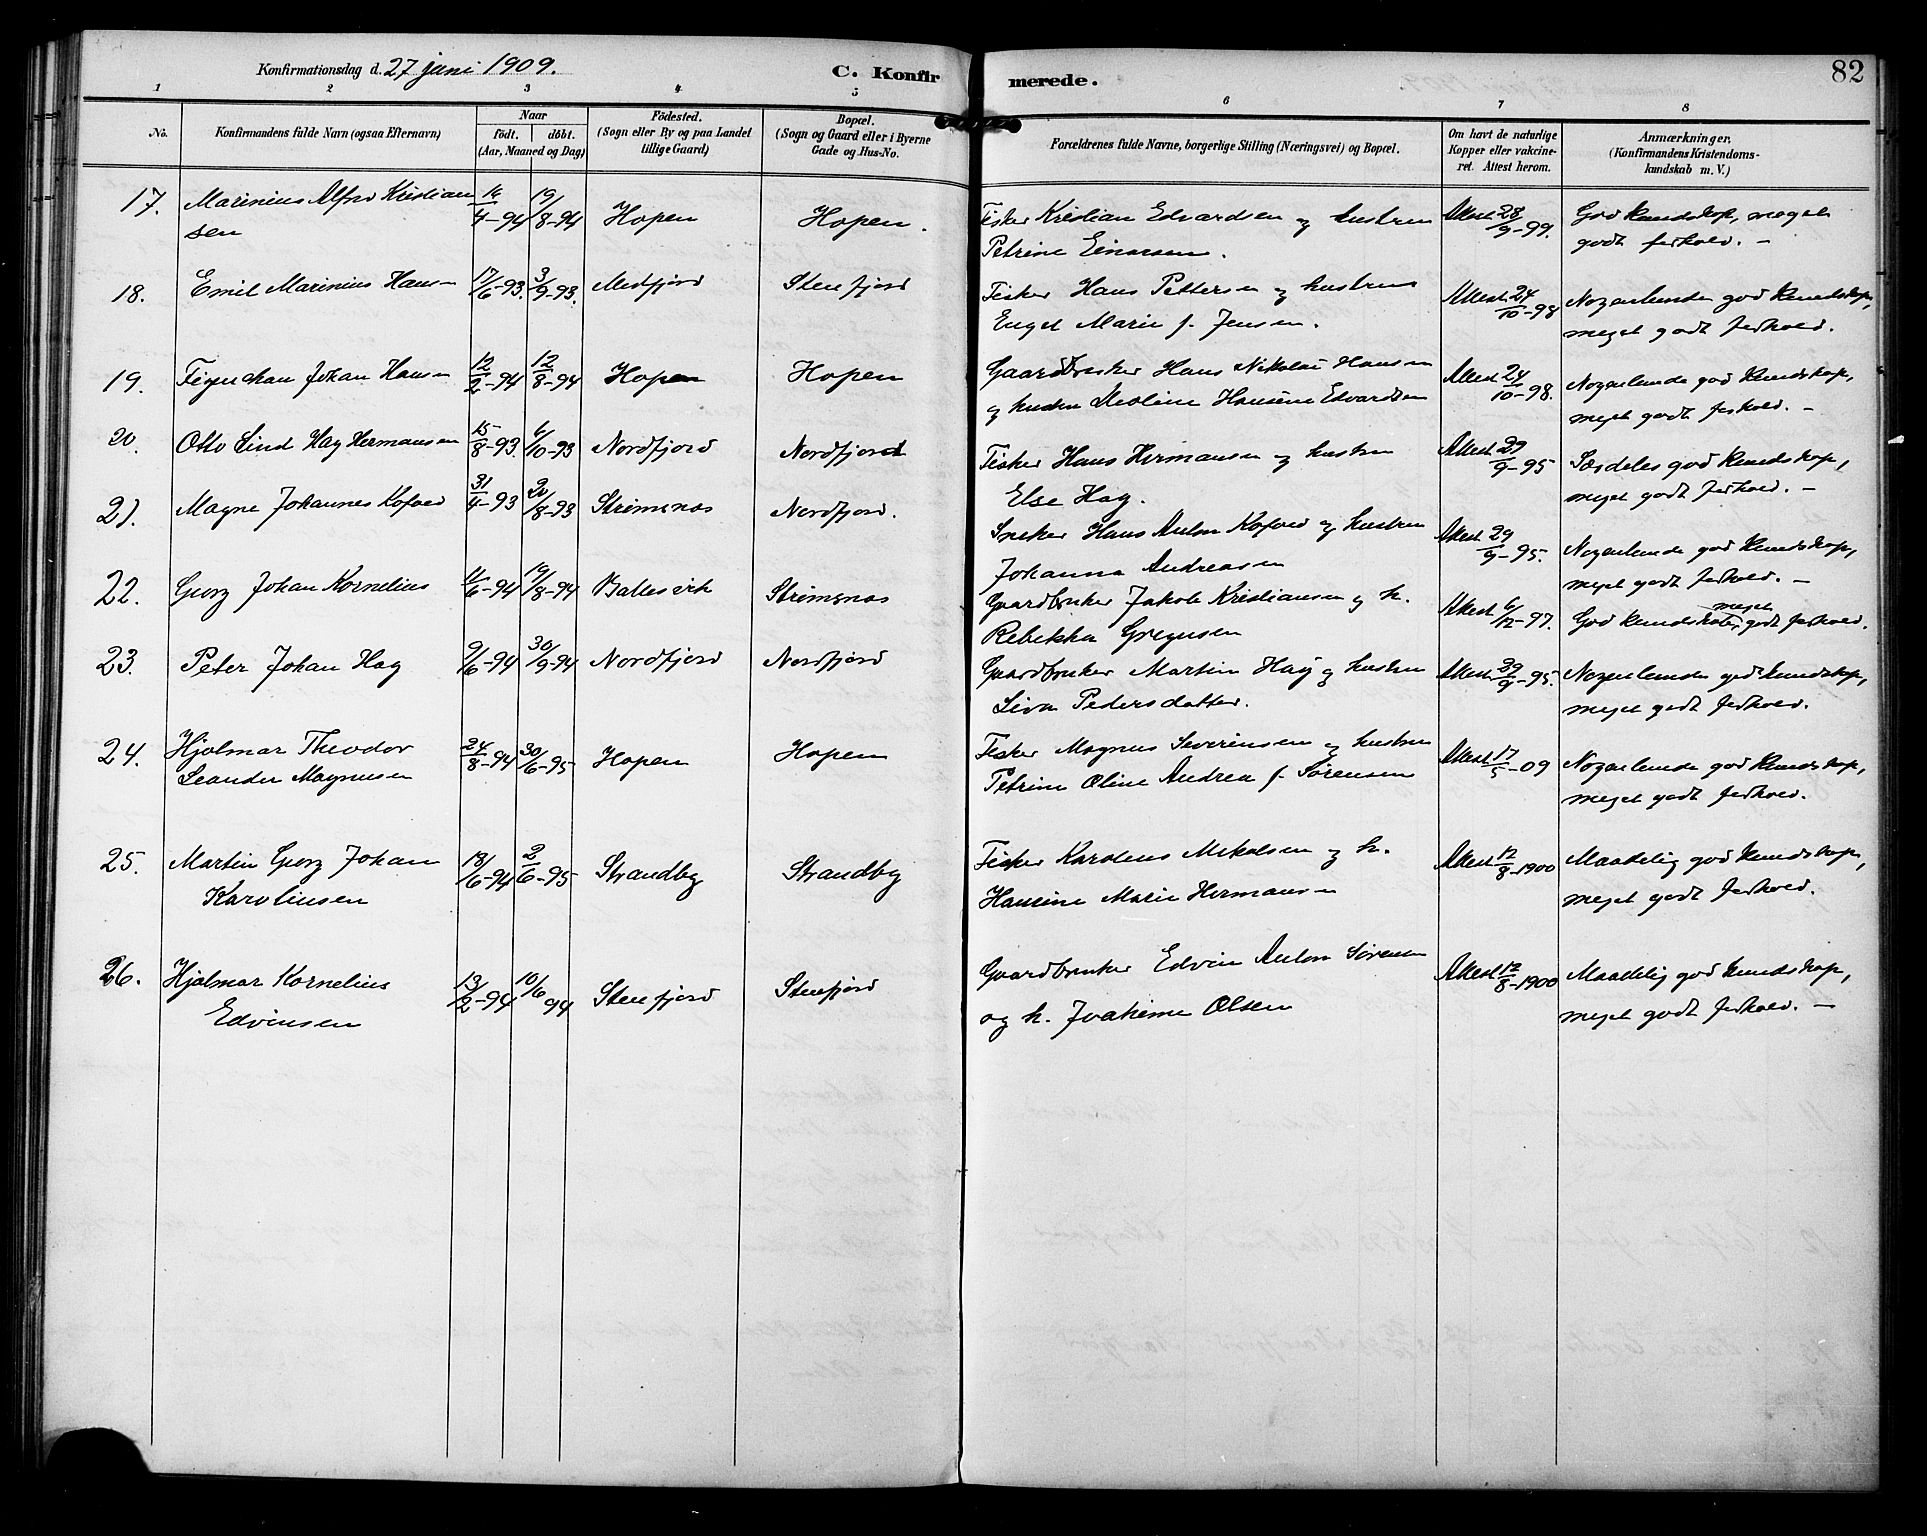 Konfirmationsdag d. 27 juni 1909.
C. Konfirmerede.
82
1 2 3 4 5 6 7 8
No.
Konfirmandens fulde Navn (ogsaa Efternavn)
Naar
födt. döbt.
(Aar, Maaned og Dag)
Födested.
(Sogn eller By og paa Landet
tillige Gaard)
Bopæl.
(Sogn og Gaard eller i Byerne
Gade og Hus-No.
Forældrenes fulde Navne, borgerlige Stilling (Næringsvei) og Bopæl.
Om havt de naturlige
Kopper eller vakcine-
ret. Attest herom.
Anmærkninger,
(Konfirmandens Kristendoms-
kundskab m. V.)
17. Marinius Alfred Kristian 16/4-94 19/8-94 Hopen Hopen. Fisker Kristian Edvardsen og hustru Attest 28/9-99. God kundskap, meget
sen Petrine Einarsen. godt forhold. -
18. Emil Marinius Hansen 17/6-93. 3/9-93. Medfjord Stenfjord Fisker Hans Pettersen og hustru Attest 24/10-98 Nogenlunde god kundskap,
Engel Marie f. Jensen. meget godt forhold.
19. Johan Hansen 12/2-94 12/8-94 Hopen Hopen Gaardbruker Hans Nikolai Hansen Attest 24/10-98. Nogenlunde god kundskap,
og hustru Hansine Edvardsen meget godt forhold. -
20. Otto Lind Hag Hermansen 15/8-93. 6/10-93 Nordfjord Nordfjord Fisker Hans Hermansen og hustru Attest 29/9-95 Særdeles god kundskap,
Else Hag. meget godt forhold. -
21. Magne Johannes Kofoed 31/4-93 20/8-93 Strømsnes Nordfjord. Sneker Hans Anton Kofoed og hustru Attest 29/9-95. Nogenlunde god kundskap,
Johanna Andreasen meget godt forhold. -
22. Georg Johan Kornelius 11/6-94 19/8-94 Ballesvik Strømsnes Gaardbruker Jakob Kristiansen og h. Attest 6/12-97. God kundskab, meget godt forhold.
Rebekka Gregusen
23. Peter Johan Hag 9/6-94 30/9-94 Nordfjord Nordfjord Gaardbruker Martin Hag og hustru Attest 29/9-95. Nogenlunde god kundskap,
Siva Pedersdatter. meget godt forhold.
24. Hjalmar Theodor 24/8-94 30/6-95 Hopen Hopen Fisker Magnus Severinsen og hustru Attest 17/5-09 Nogenlunde god kundskap,
Leander Magnussen Petrine Oline Andrea f. Sørensen meget godt forhold.
25. Martin Georg Johan 18/6-94 2/6-95 Strandby Strandby Fisker Karolius Mikalsen og h. Attest 12/8-1900 Maadelig god kundskap,
Karoliusen Hansine Marie Hermansen meget godt forhold.
26. Hjalmar Kornelius 13/2-94 10/6 94 Stenfjord Stenfjord Gaardbruker Edvin Anton Sørensen Attest 12/8-1900 Maadelig god kundskap,
Edvinsen og h. Joakime Olsen meget godt forhold. -